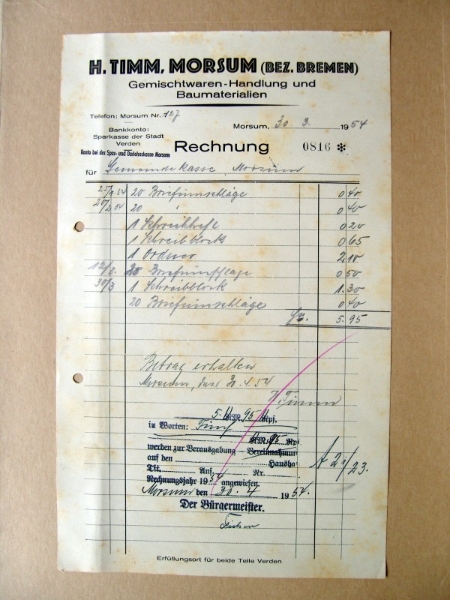 H. TIMM, MORSUM (BEZ. BREMEN)
Gemischtwaren-Handlung und
Baumaterialien
Telefon: Morsum Nr. 127
Bankkonto:
Sparkasse der Stadt
Verden
Konto bei der Spar- und Darlehnskasse Morsum
Morsum, 30. 3. 1954
Rechnung 0816 *
für Gemeindekasse, Morsum
20 Briefumschläge 0.40
20 " 0.40
1 Schreibheft 0.20
1 Schreibblock 0.65
1 Ordner 2.10
20 Briefumschläge 0.50
1 Schreibblock 1.30
20 Briefumschläge 0.40
5.95
Betrag erhalten
Morsum, den 4. 54
H. Timm
5. 95
in Worten: Fünf
werden zur Verausgabung Vereinnahmung
auf den Haush
Tit. Nr.
Rechnungsjahr 1954 angewiesen.
Morsum den 20. 4 1954
Der Bürgermeister.
A 21/23.
Erfüllungsort für beide Teile Verden